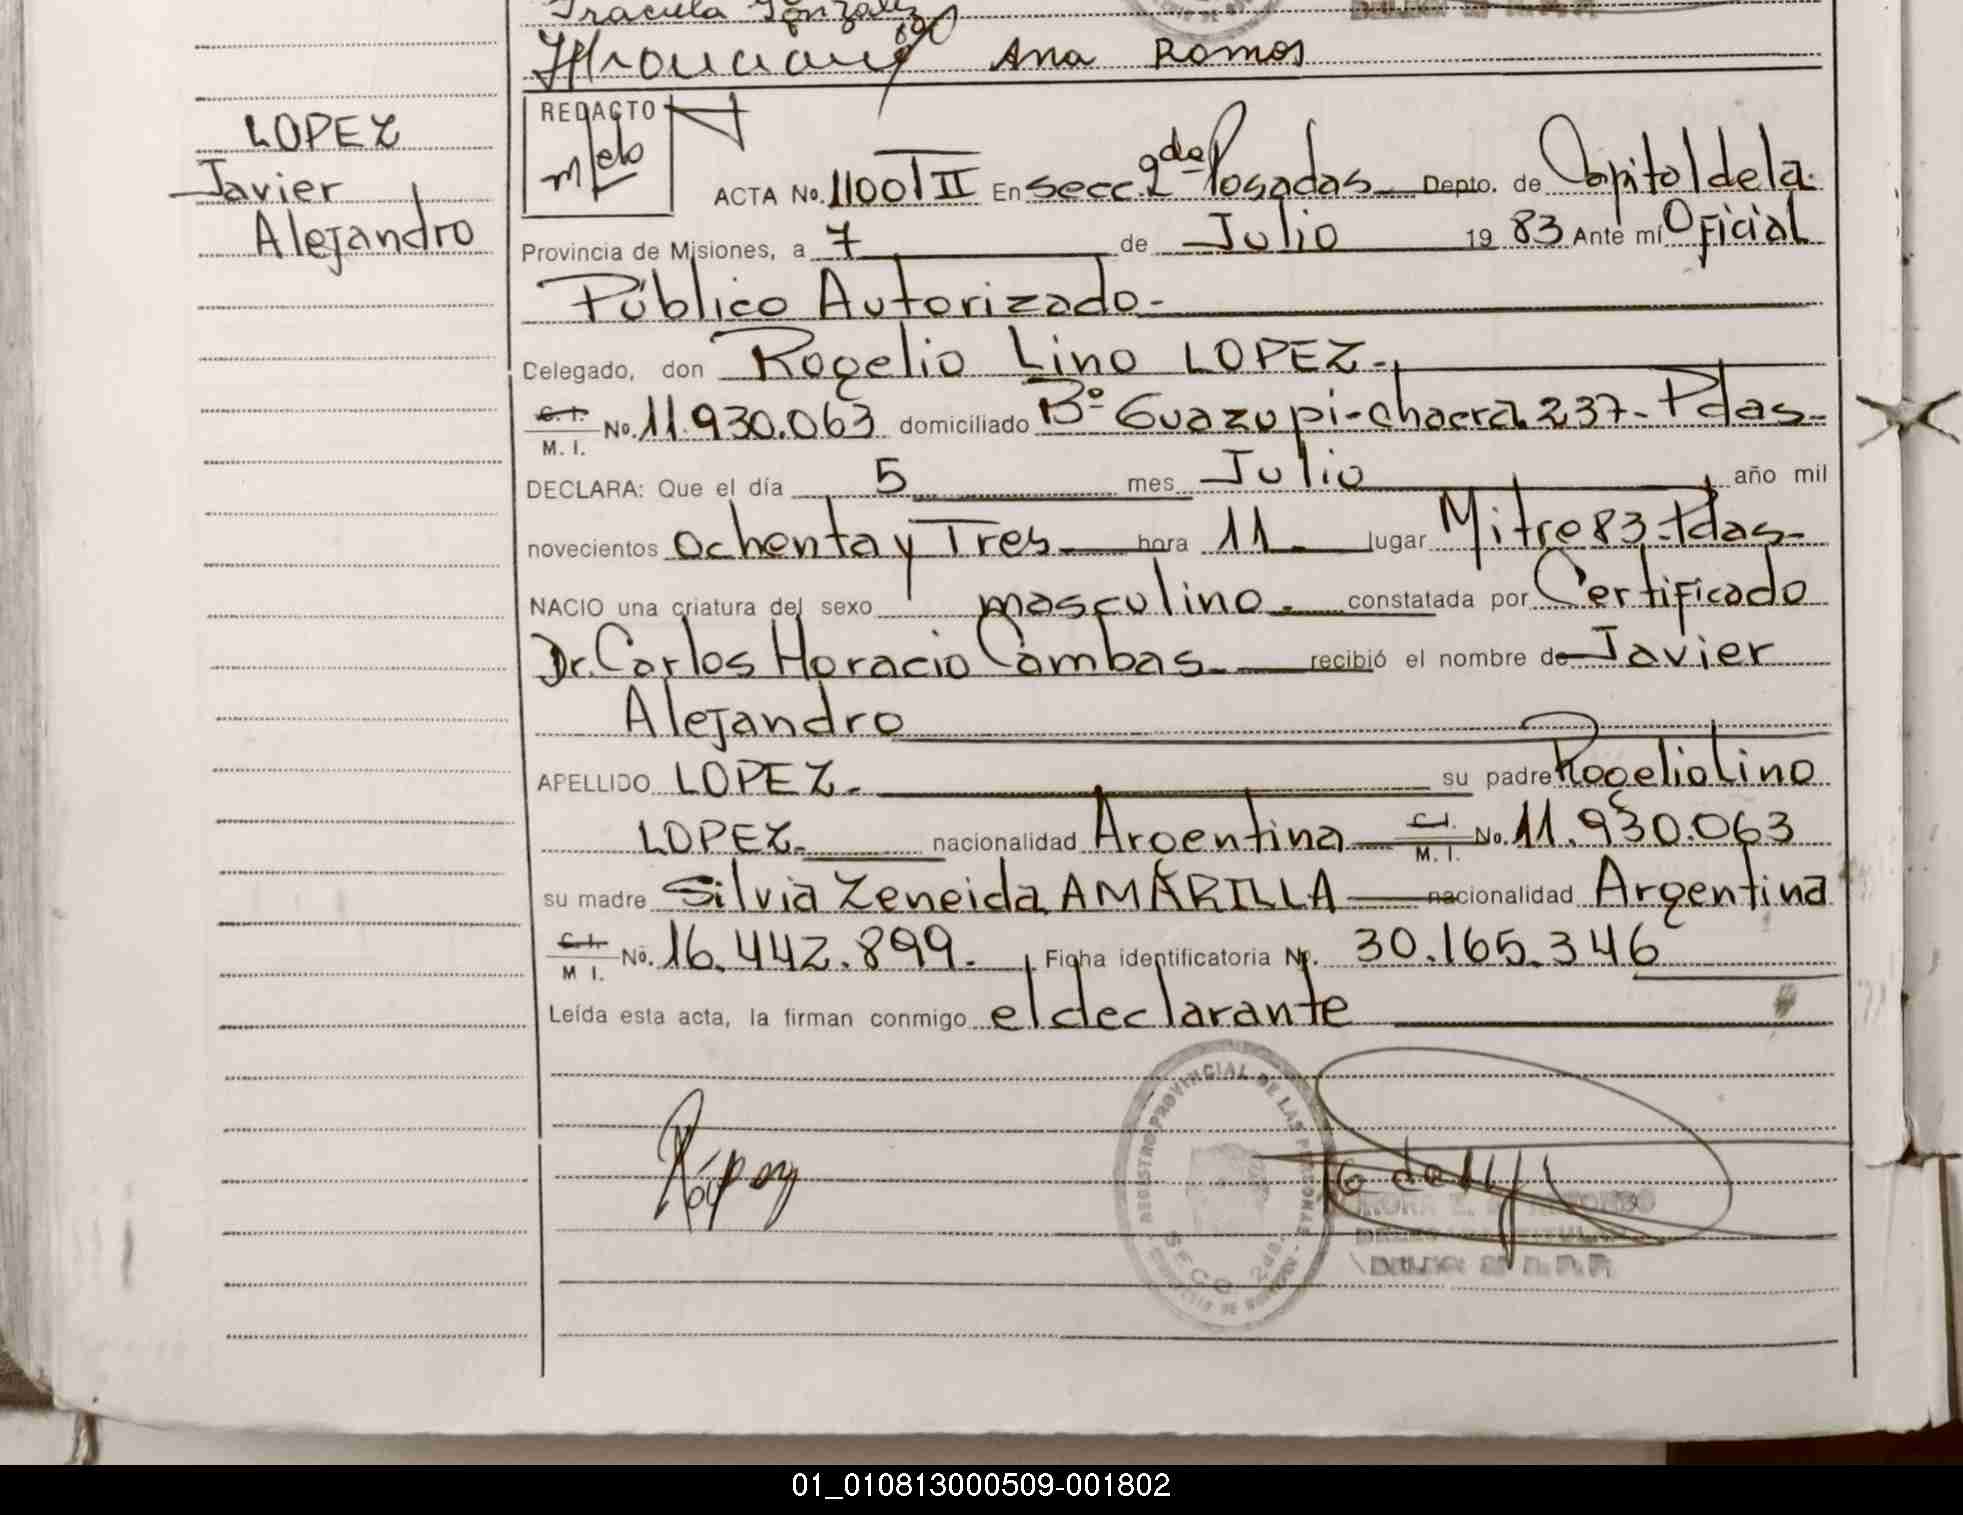 Ana Romos
LOPEZ
Javier
Alejandro
REDACTO
Melo
ACTA No. 1100 T II En Secc. 2da Posadas Depto. de Capital de la
Provincia de Misiones, a 7 de Julio 19 83 Ante mí Oficial
Público Autorizado.-
Delegado, don Rogelio Lino LOPEZ.-
C. I.
M. I. No. 11.930.063 domiciliado Bº Guazupi-chacra 237- Pdas-
DECLARA: Que el día 5 mes Julio año mil
novecientos ochenta y Tres hora 11 lugar Mitre 83-Pdas-
NACIO una criatura del sexo masculino.- constatada por Certificado
Dr. Carlos Horacio Cambas- recibió el nombre de Javier
Alejandro
APELLIDO LOPEZ.- su padre Rogelio Lino
LOPEZ- nacionalidad Argentina C.I.
M. I. No. 11.930.063
su madre Silvia Zeneida AMARILLA nacionalidad Argentina
C.I.
M I. No. 16.442.899.- Ficha identificatoria Nr. 30.165.346
Leída esta acta, la firman conmigo el declarante
REGISTRO PROVINCIAL DE LAS PERSONAS
01_010813000509-001802